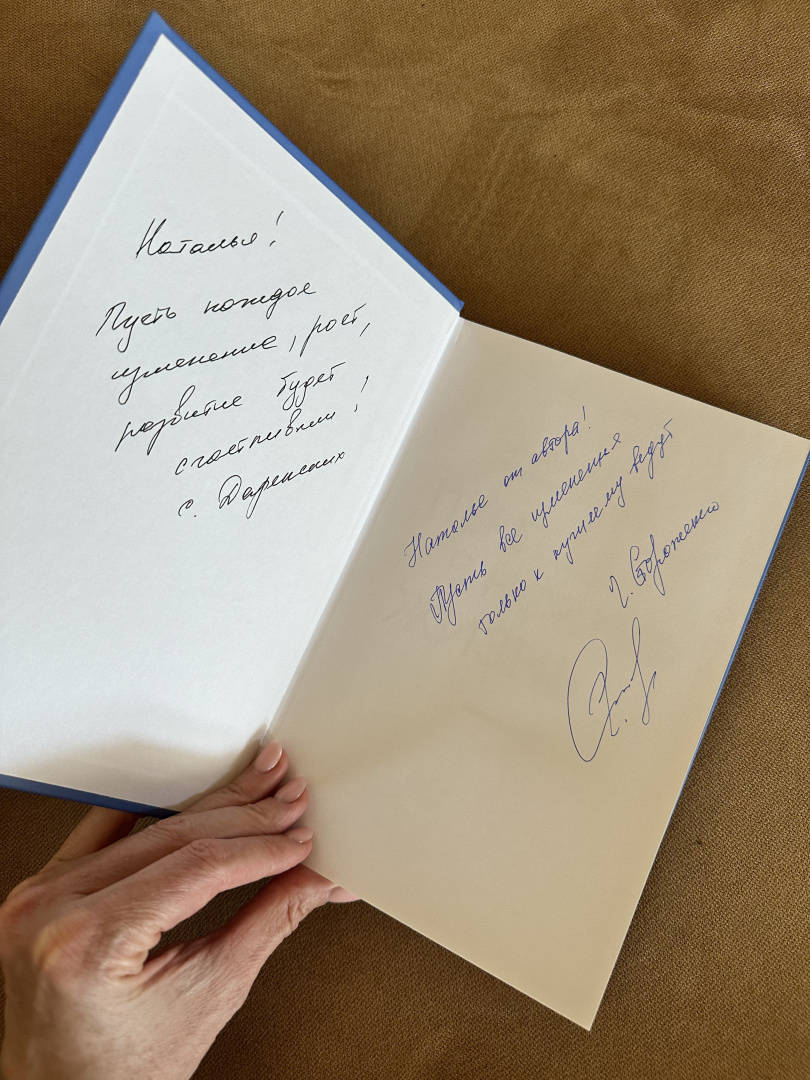 Наталья!
Пусть каждое
изменение, рост,
развитие будет
счастливым!
С. Даренских
Наталье от автора!
Пусть все изменения
только к лучшему ведут
Г. Стороженко